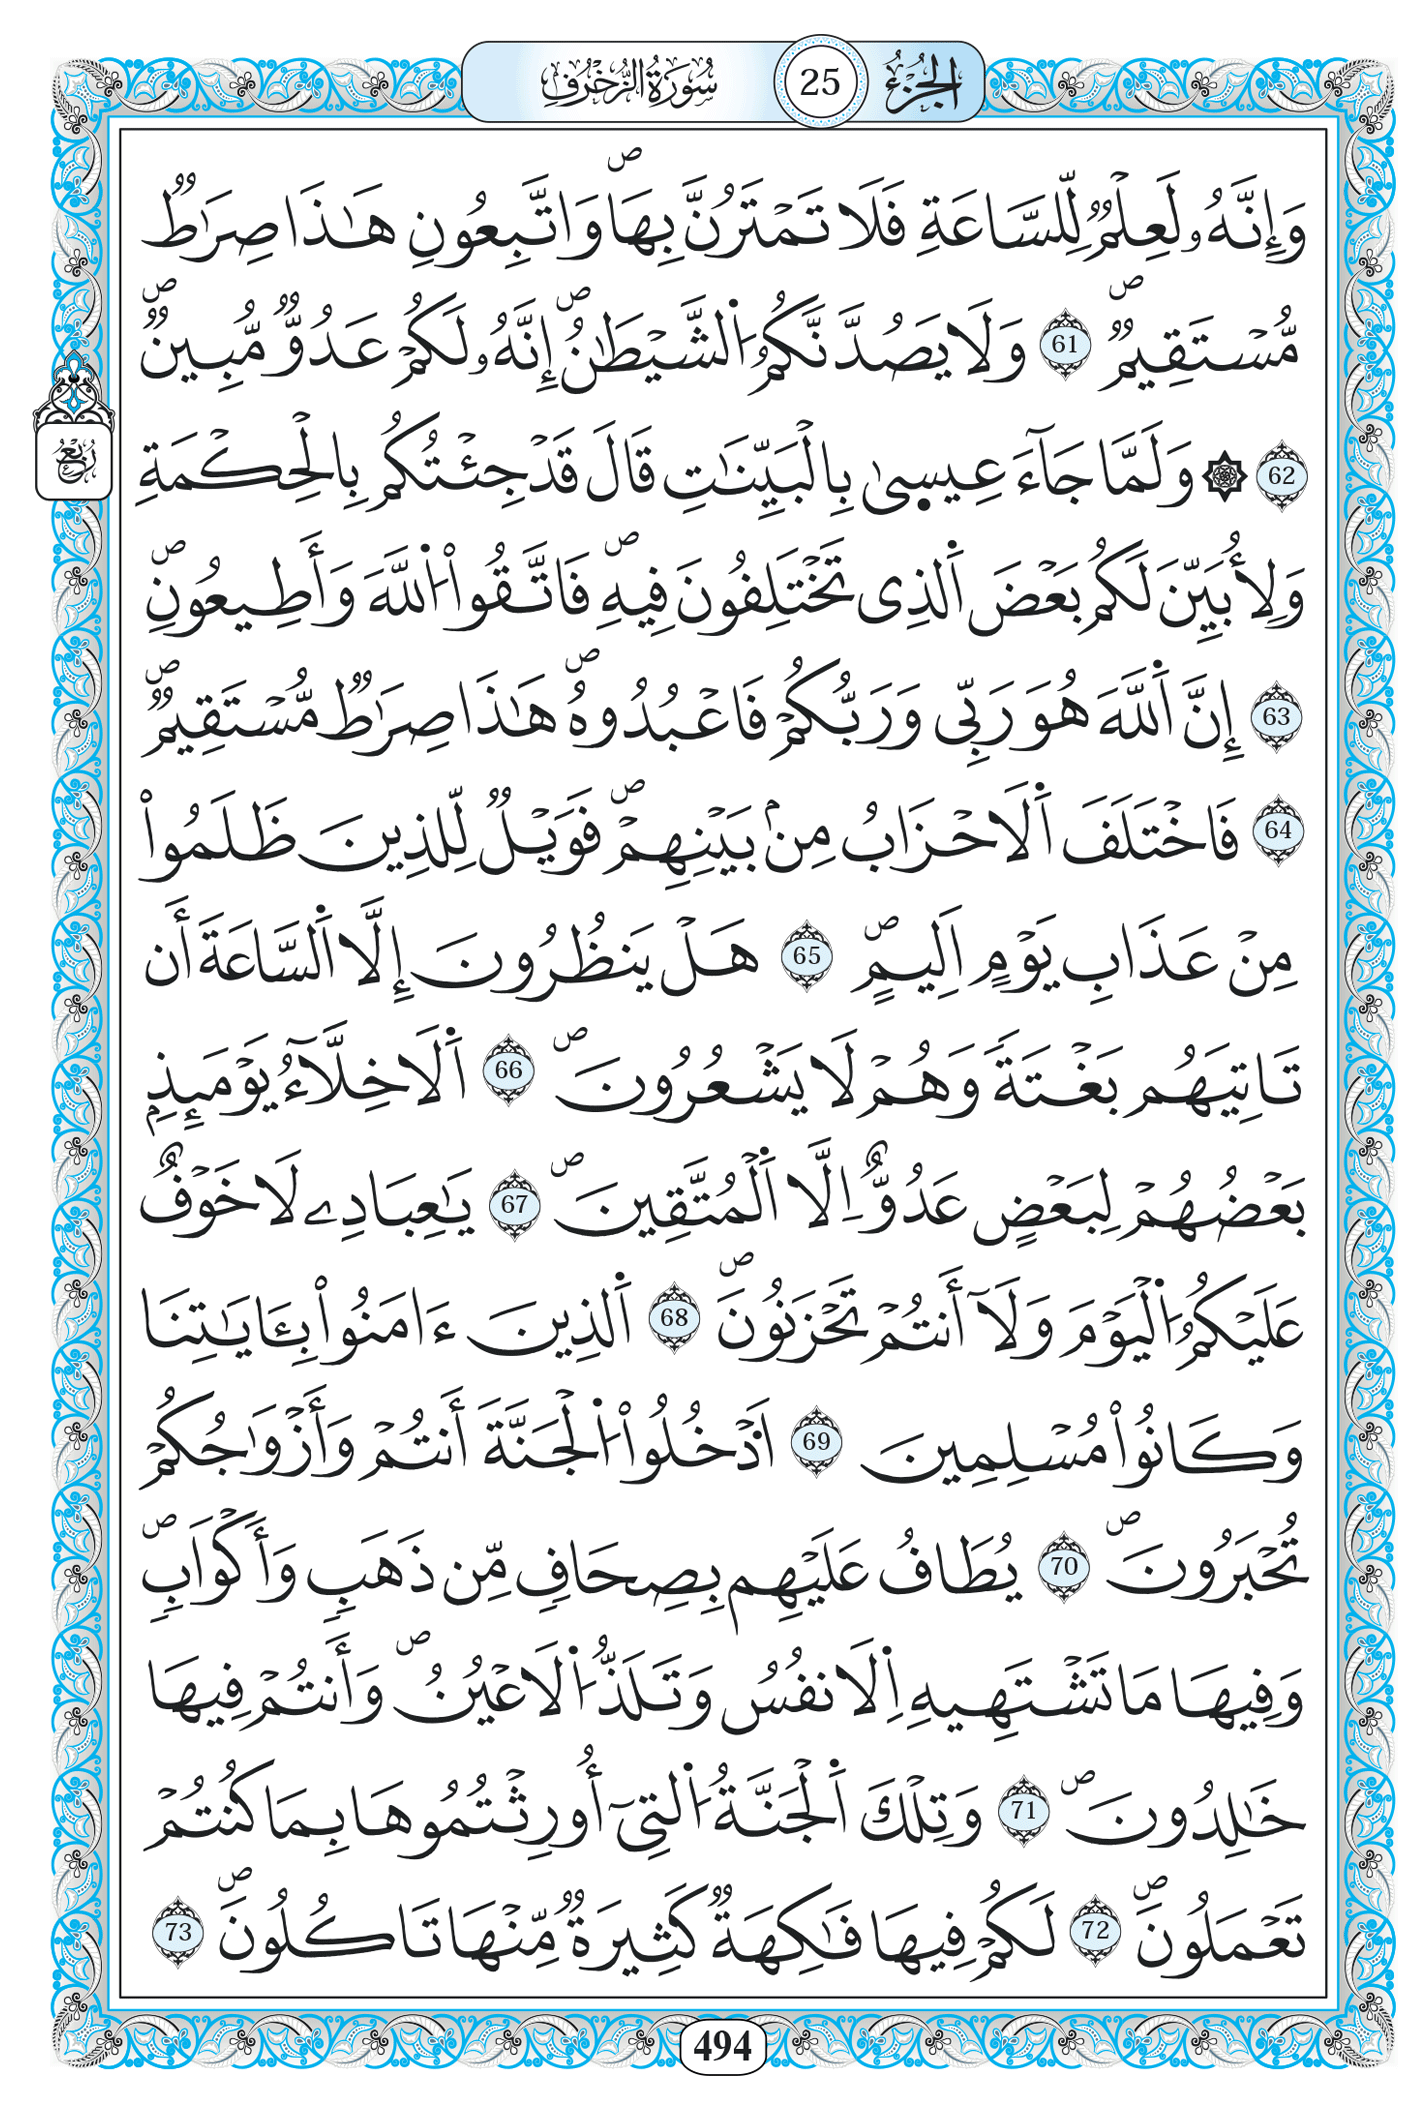 الجزء 25 سورة الزخرف
وَإِنَّهُۥ لَعِلْمٌ لِّلسَّاعَةِ فَلَا تَمْتَرُنَّ بِهَاۖ وَاتَّبِعُونِ هَٰذَا صِرَٰطٌ
مُّسْتَقِيمٌۖ 61 وَلَا يَصُدَّنَّكُمُ اُ۬لشَّيْطَٰنُۖ إِنَّهُۥ لَكُمْ عَدُوٌّ مُّبِينٌۖ
ربع
62 ۞ وَلَمَّا جَآءَ عِيسۭىٰ بِالْبَيِّنَٰتِ قَالَ قَدْ جِئْتُكُم بِالْحِكْمَةِ
وَلِأُبَيِّنَ لَكُم بَعْضَ اَ۬لذِى تَخْتَلِفُونَ فِيهِۖ فَاتَّقُواْ اُ۬للَّهَ وَأَطِيعُونِۖ
63 إِنَّ اَ۬للَّهَ هُوَ رَبِّى وَرَبُّكُمْ فَاعْبُدُوهُۖ هَٰذَا صِرَٰطٌ مُّسْتَقِيمٌۖ
64 فَاخْتَلَفَ اَ۬لَاحْزَابُ مِنۢ بَيْنِهِمْۖ فَوَيْلٌ لِّلذِينَ ظَلَمُواْ
مِنْ عَذَابِ يَوْمٍ اَلِيمٍۖ 65 هَلْ يَنظُرُونَ إِلَّا اَ۬لسَّاعَةَ أَن
تَاتِيَهُم بَغْتَةً وَهُمْ لَا يَشْعُرُونَۖ 66 اَ۬لَاخِلَّآءُ يَوْمَئِذِۢ
بَعْضُهُمْ لِبَعْضٍ عَدُوٌّ اِلَّا اَ۬لْمُتَّقِينَۖ 67 يَٰعِبَادِے لَا خَوْفٌ
عَلَيْكُمُ اُ۬لْيَوْمَ وَلَآ أَنتُمْ تَحْزَنُونَۖ 68 اَ۬لذِينَ ءَامَنُواْ بِـَٔايَٰتِنَا
وَكَانُواْ مُسْلِمِينَ 69 اَدْخُلُواْ اُ۬لْجَنَّةَ أَنتُمْ وَأَزْوَٰجُكُمْ
تُحْبَرُونَۖ 70 يُطَافُ عَلَيْهِم بِصِحَافٍ مِّن ذَهَبٍ وَأَكْوَابٍۖ
وَفِيهَا مَا تَشْتَهِيهِ اِ۬لَانفُسُ وَتَلَذُّ اُ۬لَاعْيُنُۖ وَأَنتُمْ فِيهَا
خَٰلِدُونَۖ 71 وَتِلْكَ اَ۬لْجَنَّةُ اُ۬لتِىٓ أُورِثْتُمُوهَا بِمَا كُنتُمْ
تَعْمَلُونَۖ 72 لَكُمْ فِيهَا فَٰكِهَةٌ كَثِيرَةٌ مِّنْهَا تَاكُلُونَۖ 73
494